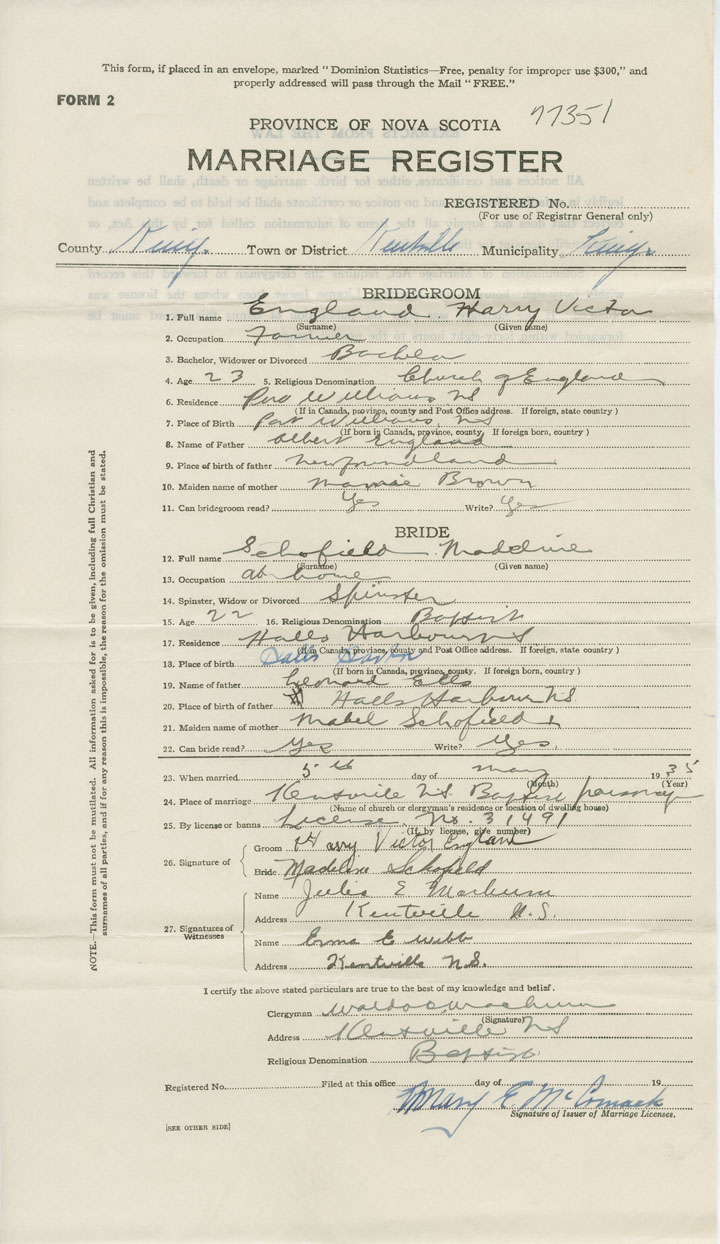 This form, if placed in an envelope, marked "Dominion Statistics—Free, penalty for improper use $300," and
properly addressed will pass through the Mail "FREE."
FORM 2
77351
PROVINCE OF NOVA SCOTIA
MARRIAGE REGISTER
REGISTERED No.
(For use of Registrar General only)
County Kings Town or District Kentville Municipality Kings
BRIDEGROOM
1. Full name England Harry Victor
(Surname) (Given name)
2. Occupation Farmer
3. Bachelor, Widower or Divorced Bachelor
4. Age 23 5. Religious Denomination Church of England
6. Residence Port Williams NS
(If in Canada, province, county and Post Office address. If foreign, state country)
7. Place of Birth Port Williams, NS
(If born in Canada, province, county. If foreign born, country)
8. Name of Father Albert England
9. Place of birth of father Newfoundland
10. Maiden name of mother Mamie Brown
11. Can bridegroom read? Yes Write? Yes
BRIDE
12. Full name Schofield Madeline
(Surname) (Given name)
13. Occupation at home
14. Spinster, Widow or Divorced Spinster
15. Age 22 16. Religious Denomination Baptist
17. Residence Halls Harbour NS
(If in Canada, province, county and Post Office address. If foreign, state country)
18. Place of birth
(If born in Canada, province, county. If foreign born, country)
19. Name of father Leonard Ells
20. Place of birth of father Halls Harbour NS
21. Maiden name of mother Mabel Schofield
22. Can bride read? Yes Write? Yes.
23. When married 5th day of May 1935
(Month) (Year)
24. Place of marriage Kentville N.S Baptist parsonage
(Name of church or clergyman's residence or location of dwelling house)
25. By license or banns License No. 31491
(If by license, give number)
26. Signature of
Groom Harry Victor England
Bride Madeline Schofield
27. Signatures of Witnesses
Name Julia E
Address Kentville N.S.
Name Erma E Webb
Address Kentville N.S.
I certify the above stated particulars are true to the best of my knowledge and belief.
Clergyman
(Signature)
Address Kentville NS
Religious Denomination Baptist
Registered No. Filed at this office day of 19
Mary E. McCormack
Signature of Issuer of Marriage Licenses.
[SEE OTHER SIDE]
NOTE.—This form must not be mutilated. All information asked for is to be given, including full Christian and
surnames of all parties, and if for any reason this is impossible, the reason for the omission must be stated.